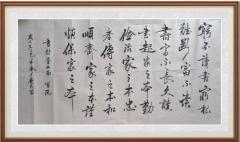 窮不讀書窮根
難斷富不讀
書富不長久讀
書起家之本勤
儉治家之本忠
孝傳家之本和
順齊家之本謹
慎保家之本